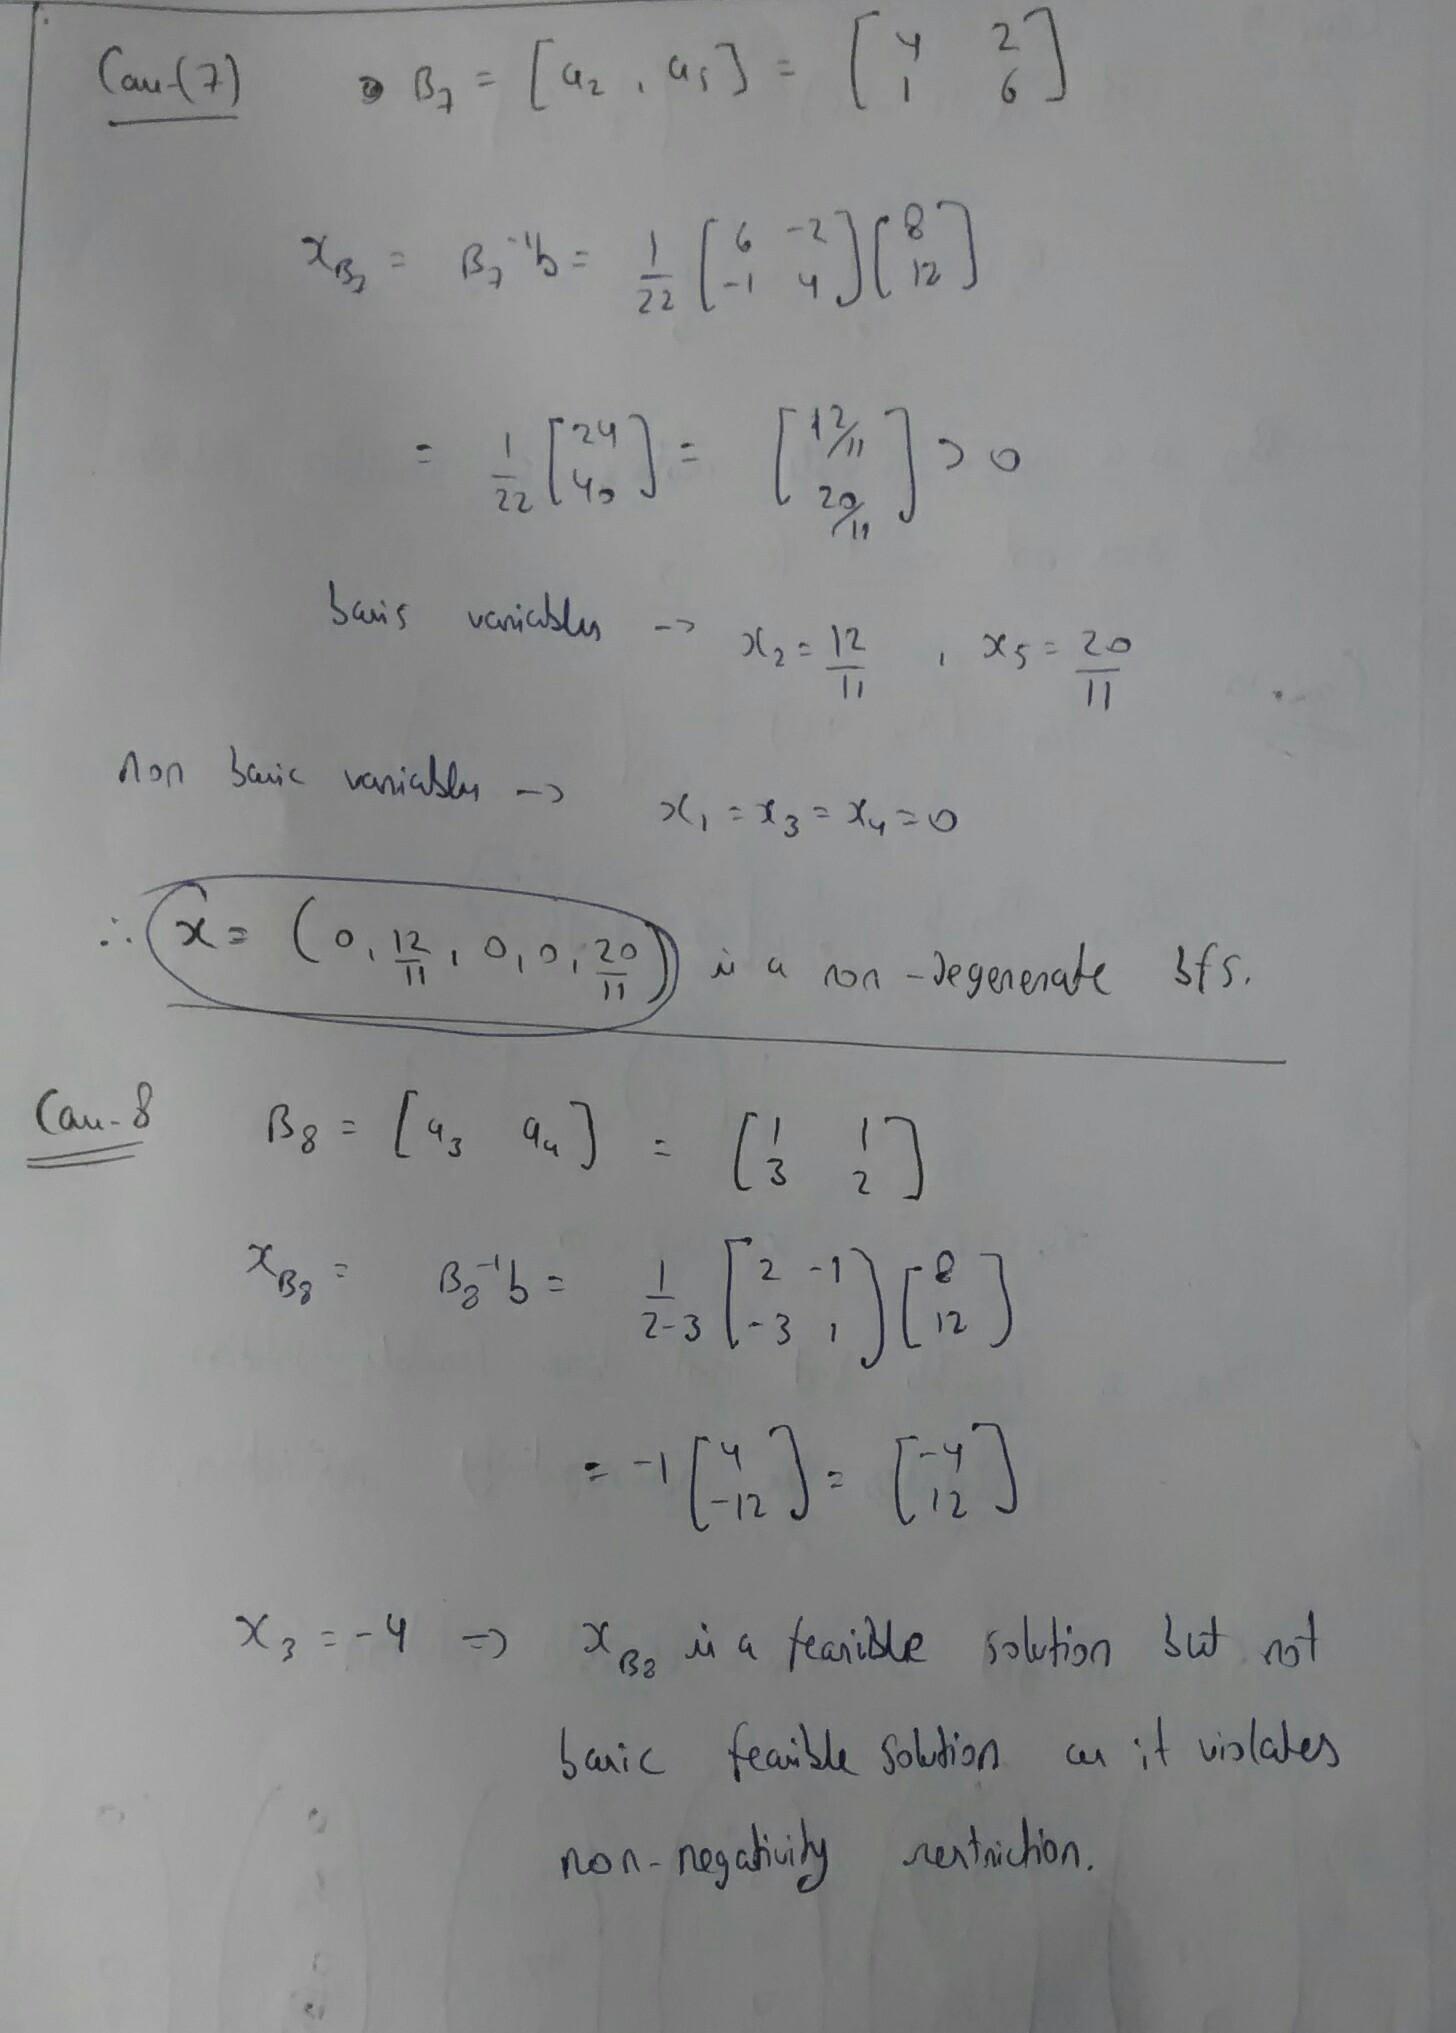 Case-(7) B₇ = [a₂, a₅] = [4 2; 1 6]
x_B₇ = B₇⁻¹b = 1/22 [6 -2; -1 4] [8; 12]
= 1/22 [24; 40] = [12/11; 20/11] > 0
basis variables -> x₂ = 12/11 , x₅ = 20/11
non basic variables -> x₁ = x₃ = x₄ = 0
∴ x = (0, 12/11, 0, 0, 20/11) is a non-degenerate bfs.
Case-8 B₈ = [a₃ a₄] = [1 1; 3 2]
x_B₈ = B₈⁻¹b = 1/2-3 [2 -1; -3 1] [8; 12]
= -1 [4; -12] = [-4; 12]
x₃ = -4 => x_B₈ is a feasible solution but not
basic feasible solution as it violates
non-negativity restriction.